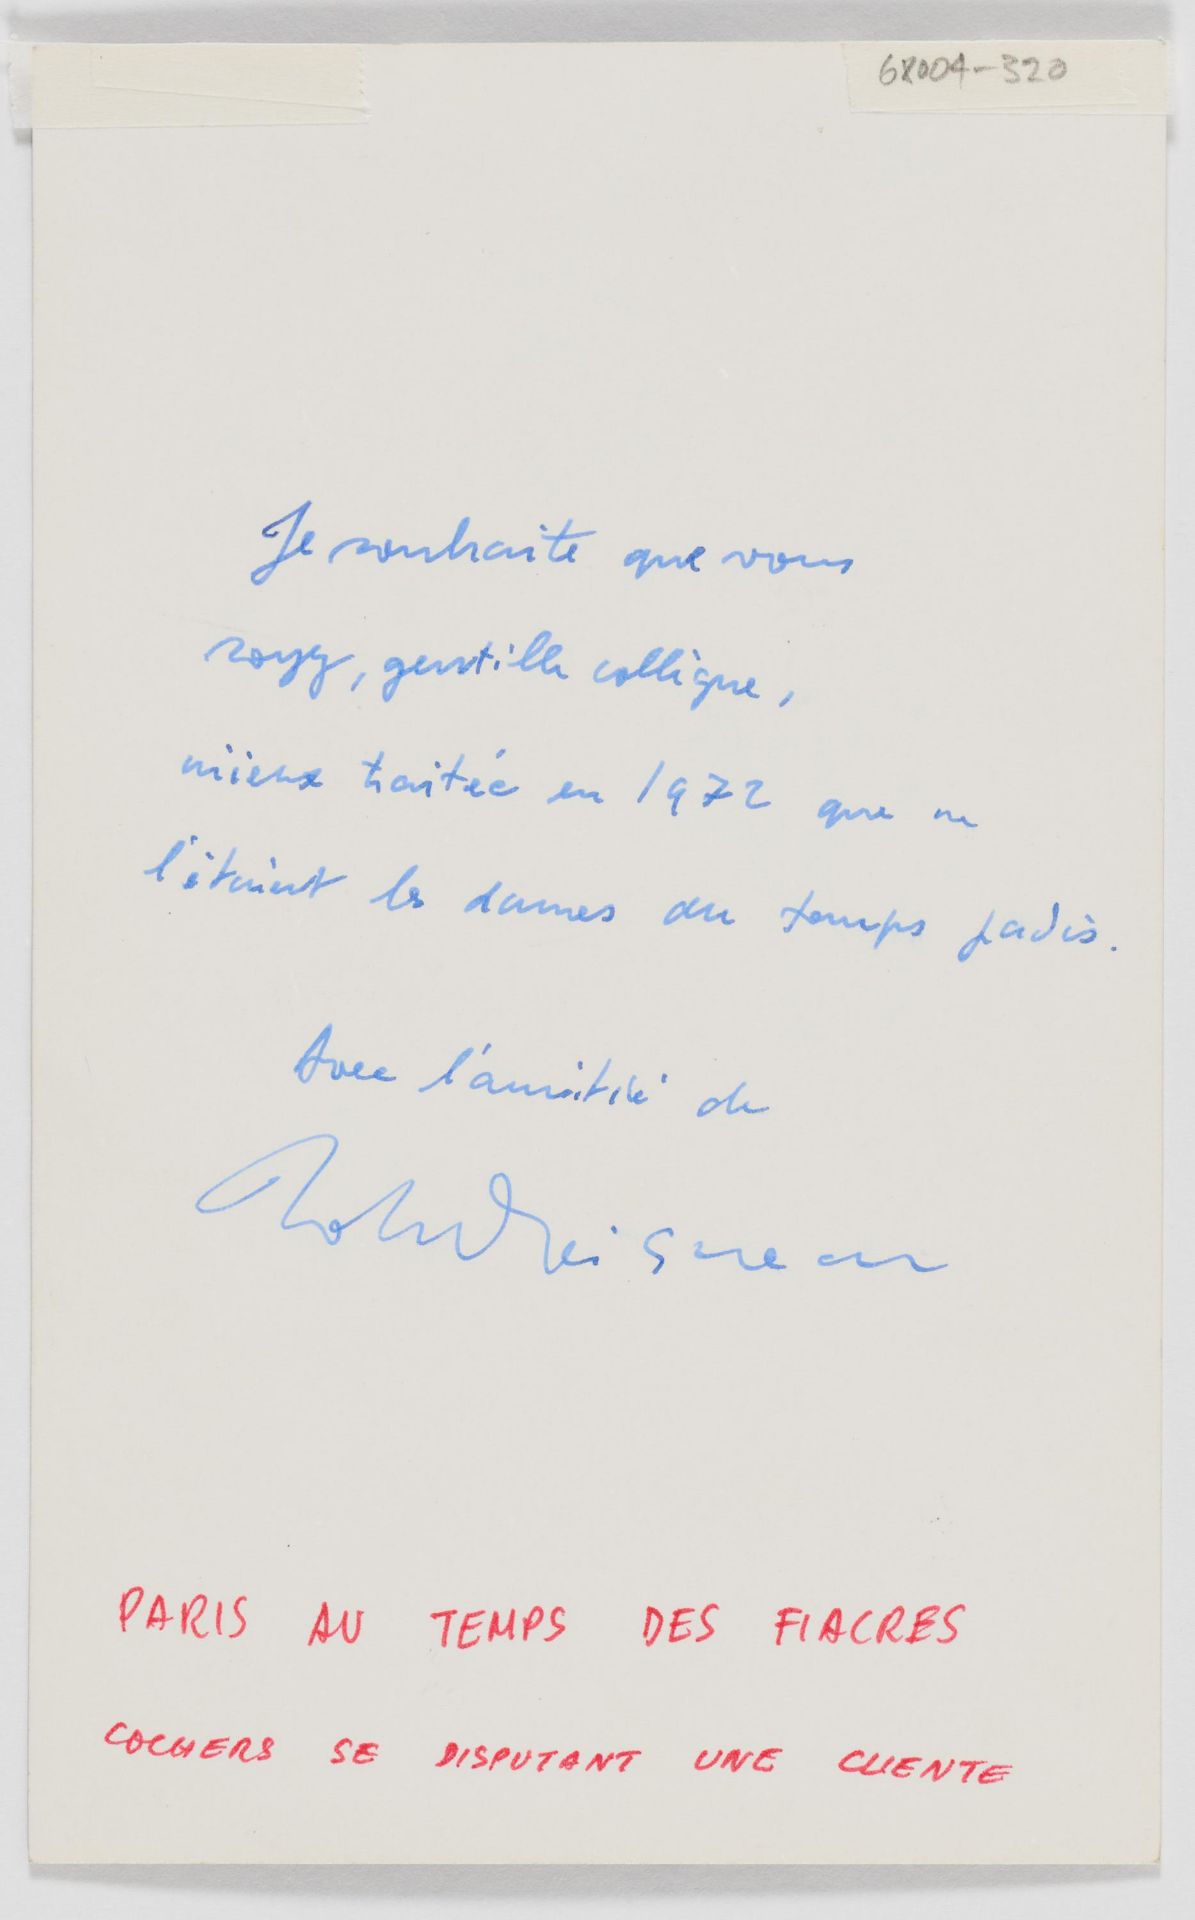 68004-320
Je souhaite que vous
soyez, gentille collègue,
mieux traitée en 1972 que ne
l'étaient les dames du temps jadis.
Avec l'amitié de
Robert Doisneau
PARIS AU TEMPS DES FIACRES
COCHERS SE DISPUTANT UNE CLIENTE